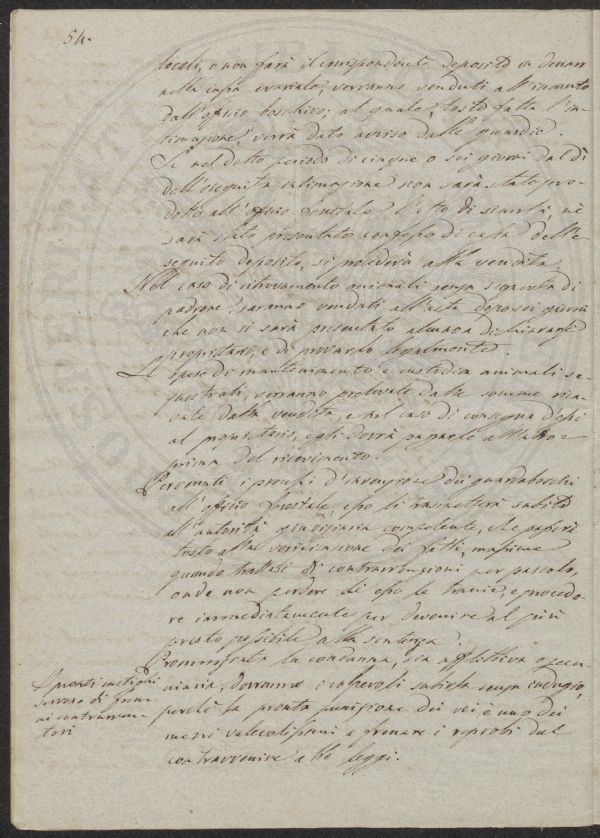 54.
locali, o non farà il corrispondente deposito in denaro
nella cassa erariale, verranno venduti all'incanto
dall'officio boschivo; al quale, tosto fatta l'in-
timazione, verrà dato avviso dalle guardie.
Se nel detto periodo di cinque o sei giorni dal dì
dell'eseguita intimazione non sarà stato pro-
dotto all'officio forestale l'atto di sicurtà, nè
sarà stato presentato confesso di cassa dell'e-
seguito deposito, si procederà alla vendita.
Nel caso di ritrovamento animali senza scapola di
padrone, saranno venduti all'asta dopo sei giorni
che non si sarà presentato alcuno a dichiararsi
proprietario, e di provarlo legalmente.
Le spese di mantenimento e custodia animali se-
questrati, verranno prelevate dalle somme rica-
vate dalla vendita, e nel caso di consegna di essi
al proprietario, egli dovrà pagarle all'atto e
prima del ricevimento.
Pervenuti i processi d'invenzione dei guardaboschi
all'officio forestale, esso li trasmetterà subito
all'autorità giudiziaria competente, che passerà
tosto alla verificazione dei fatti, massime
quando trattasi di contravvenzioni per pascolo,
onde non perdere di esso le traccie, e procede-
re immediatamente per devenire al più
presto possibile alla sentenza.
Pronunciata la condanna, sia afflittiva o pecu-
niaria, dovranno i colpevoli subirla senza indugio,
perchè la pronta punizione dei rei è uno dei
mezzi valevolissimi a frenare i reprobi dal
contravvenire alle leggi.
I pronti castighi
servono di freno
ai contravven-
tori